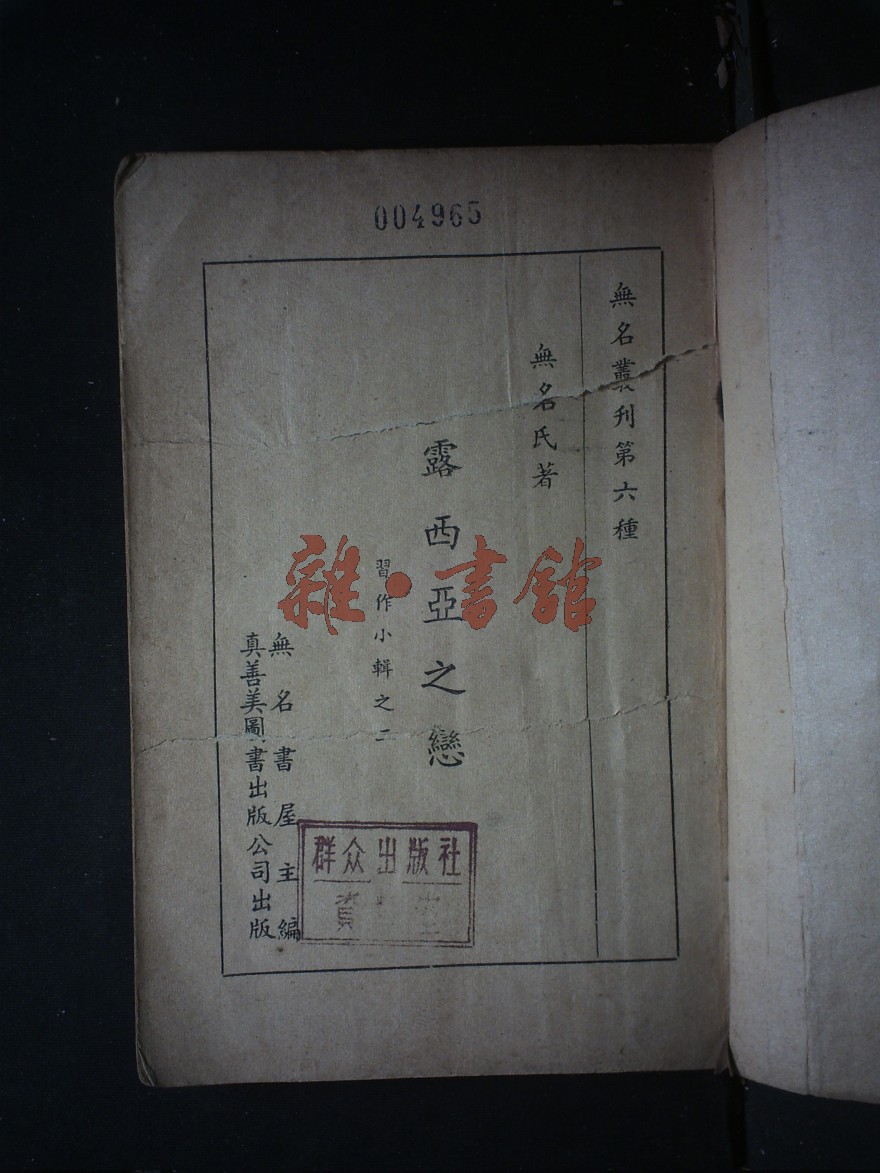 004965
無名叢刊第六種
無名氏著
露西亞之戀
習作小輯之二
無名書屋主編
真善美圖書出版公司出版
群众出版社
資 室
雜·書館